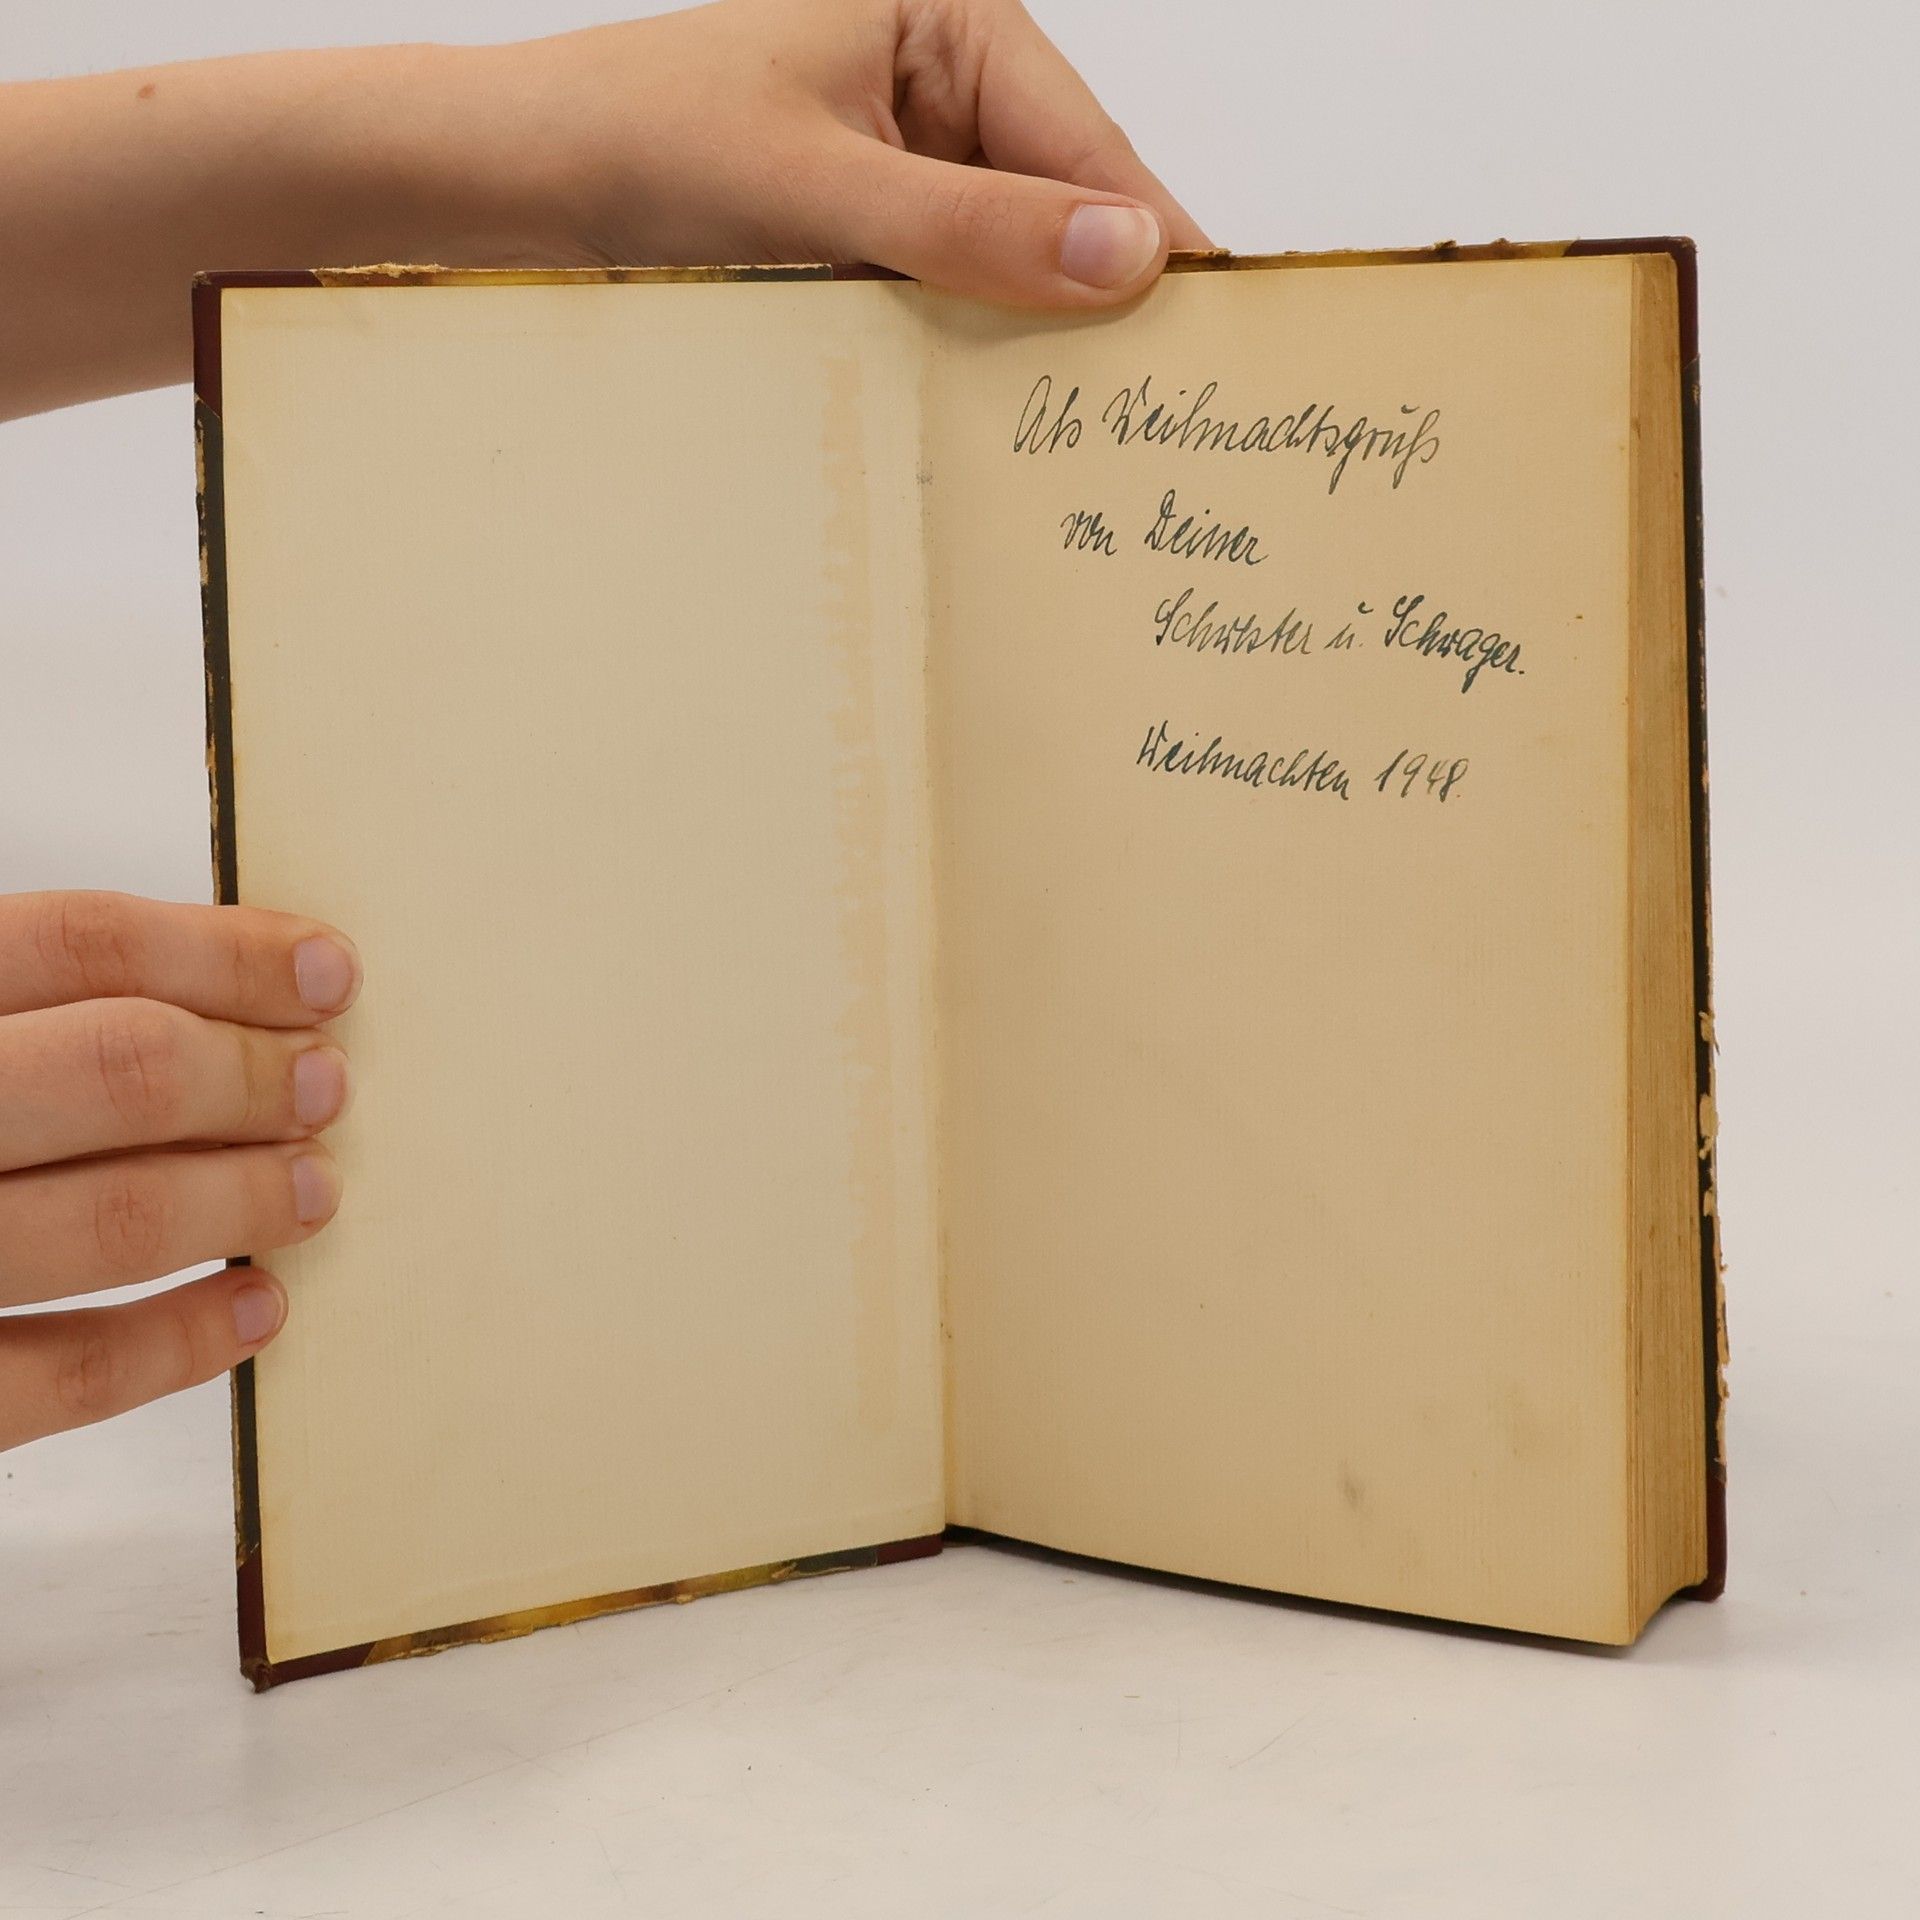 Als Weihnachtsgruß
von Deiner
Schwester u. Schwager.
Weihnachten 1948.